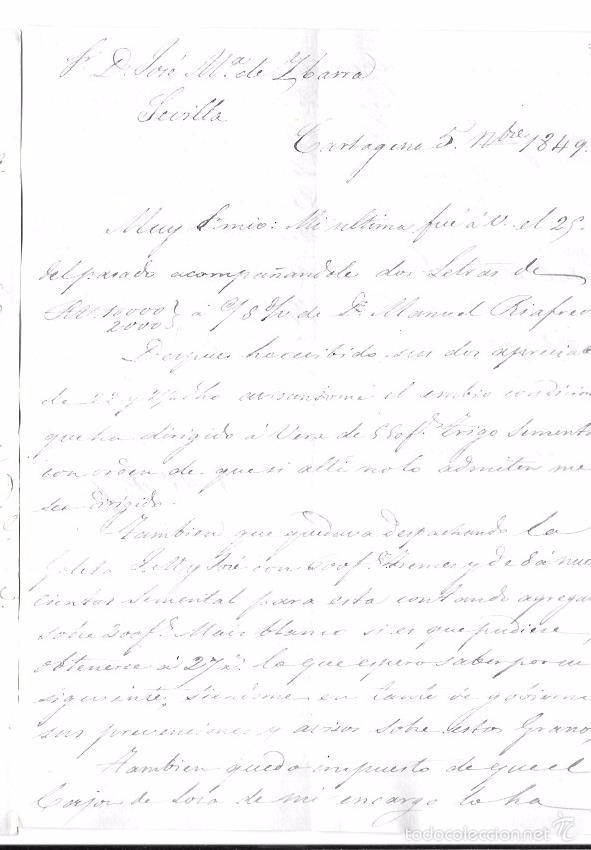 Sr. D. José Mª. de Ybarra
Sevilla
Cartagena 5. Nbre 1849.
Muy Sr. mio: Mi ultima fué á V. el 25.
del pasado acompañandole dos Letras de
10000
2000 } á de Dn. Manuel Riafrec
Despues he recibido sus dos aprecia
de 22 y avisandome el embio condicion
que ha dirigido á Vera de 550 f.s Trigo Sementl
con orden de que si alli no lo admiten me
sea dirigido.
Tambien que quedava despachando la
Goleta S. José con y de 8 á nue
cientos Semental para esta contando agregar
sobre 300 f.s Mais blanco si es que pudiera
obtenerce á 27 lo que espero saber por su
siguiente, siendome en tanto de govierno
sus prevenciones y avisos sobre estos Granos,
Tambien quedo impuesto de que el
Cajon de Loza de mi encargo lo ha
todocoleccion.net